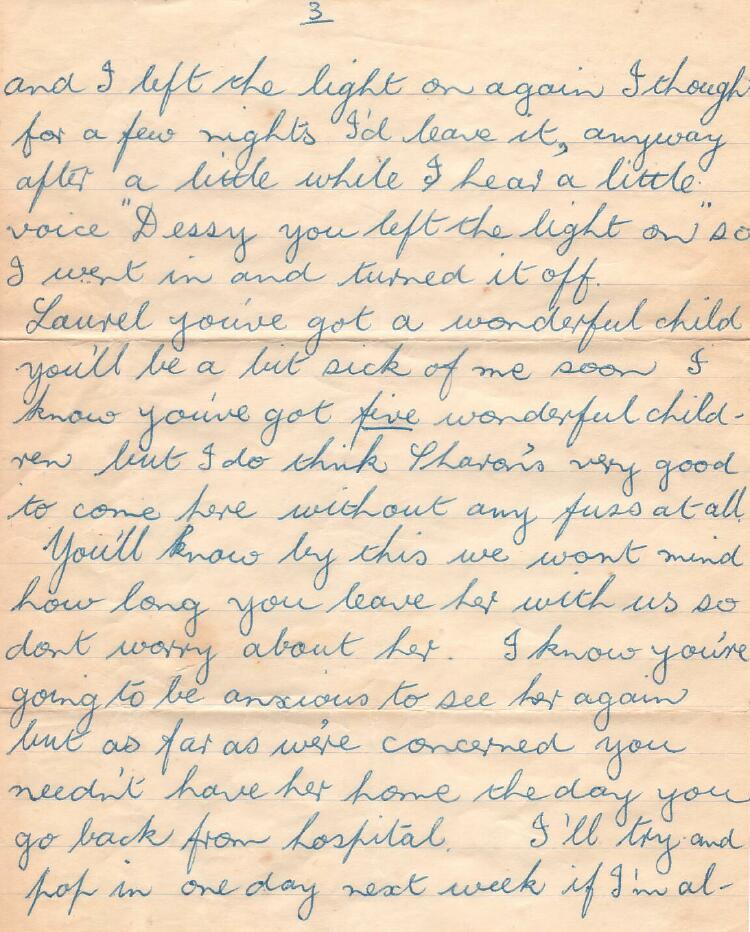 3
and I left the light on again I though
for a few nights I'd leave it, anyway
after a little while I hear a little
voice "Dessy you left the light on" so
I went in and turned it off.
Laurel you've got a wonderful child
you'll be a bit sick of me soon I
know you've got five wonderful child-
ren but I do think Sharon's very good
to come here without any fuss at all.
You'll know by this we wont mind
how long you leave her with us so
dont worry about her. I know you're
going to be anxious to see her again
but as far as we're concerned you
needn't have her home the day you
go back from hospital. I'll try and
pop in one day next week if I'm al-